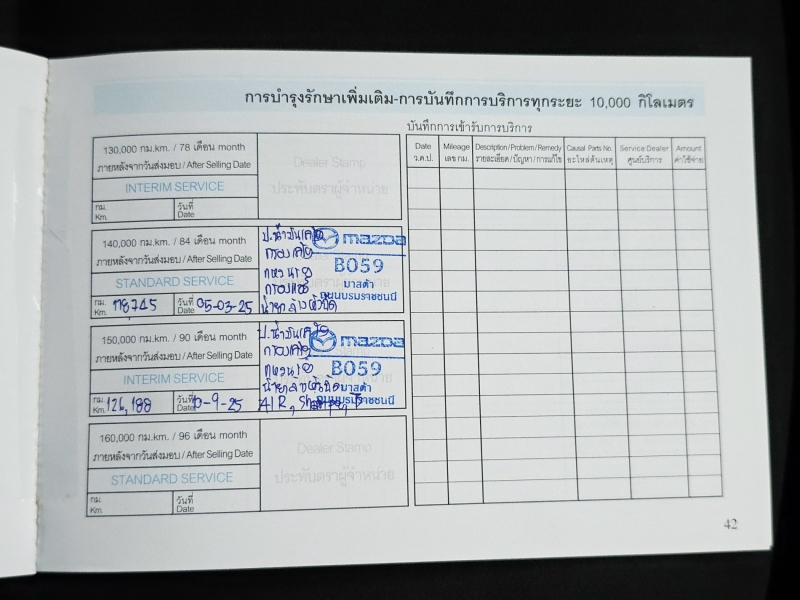 การบำรุงรักษาเพิ่มเติม-การบันทึกการบริการทุกระยะ 10,000 กิโลเมตร
130,000 กม.km. / 78 เดือน month
ภายหลังจากวันส่งมอบ / After Selling Date
INTERIM SERVICE
กม. Km.
วันที่ Date
Dealer Stamp
ประทับตราผู้จำหน่าย
140,000 กม.km. / 84 เดือน month
ภายหลังจากวันส่งมอบ / After Selling Date
STANDARD SERVICE
กม. Km. 118,745
วันที่ Date 05-03-25
mazda
B059
มาสด้า
ถนนบรมราชชนนี
150,000 กม.km. / 90 เดือน month
ภายหลังจากวันส่งมอบ / After Selling Date
INTERIM SERVICE
กม. Km. 126,188
วันที่ Date -9-25
mazda
B059
มาสด้า
ถนนบรมราชชนนี
AIR,
160,000 กม.km. / 96 เดือน month
ภายหลังจากวันส่งมอบ / After Selling Date
STANDARD SERVICE
กม. Km.
วันที่ Date
Dealer Stamp
ประทับตราผู้จำหน่าย
บันทึกการเข้ารับการบริการ
Date ว.ด.ป.
Mileage เลข กม.
Description / Problem / Remedy รายละเอียด / ปัญหา / การแก้ไข
Causal Parts No. อะไหล่ต้นเหตุ
Service Dealer ศูนย์บริการ
Amount ค่าใช้จ่าย
42